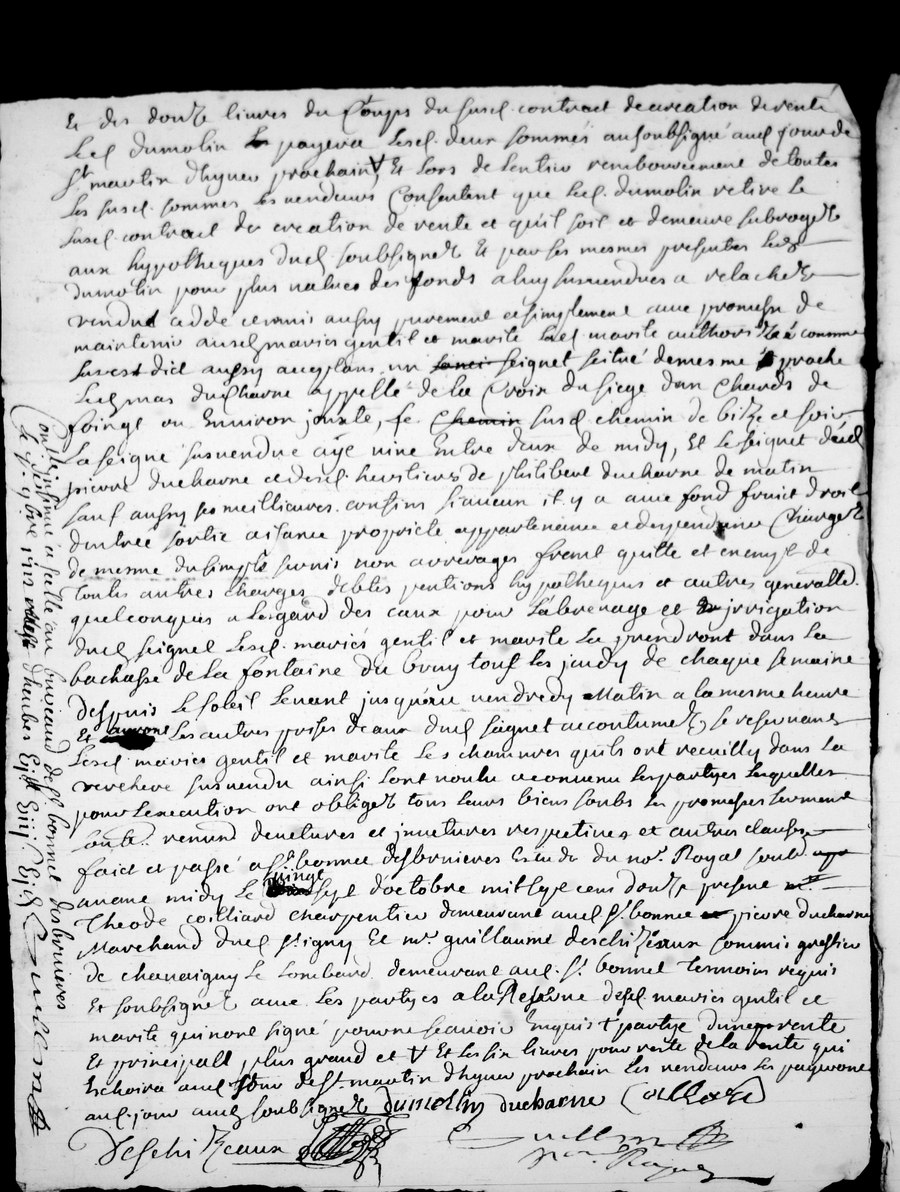 Et des douze livres du Corps du susd. contract de creation de rente
Led. dumolin payera lesd. deux sommes au soubsigné aud. jour de
St. martin dhyver prochain, Et Lors de Lentier remboursement de toutes
Les susd. sommes les vendeurs Consentent que Led. dumolin retire Le
susd. contract de creation de rente et quil soit et demeure subrogez
aux hypotheques dud. soubsignez Et par ses mesmes presentes Led.
dumolin pour plus values des fonds a luy susvendues a relachez
vendu cedde remis aussy purement et simplement avec promesse de
maintenir ausd. mariés gentil et marite Lad. marite authorizée comme
sus est dict aussy acceptans un seignet situé de mesme proche
Led. mas ducharne appellé de la Croix du siege dun Chards de
foingt ou Environ jouxte, Le Chemin susd. chemin de bize et soir
La seigne susvendue une Entre deux de midy, Et Le seignet dud.
pierre ducharne et desd. heritiers de philibert ducharne de matin
sauf aussy ses meilleures confins si aucun il y a avec fond fruict droit
dentrée sortie aisance proprieté appartenance et dependance Chargez
de mesme du simple servis non arrerages franc quitte et exempt de
touts autres charges debtes pentions hypotheques et autres generallt.
quelconques a Legard des eaux pour Labrevage et irrigation
dud. seignet Lesd. mariés gentil et marite La prendront dans La
bachasse de La fontaine du bruy tous les jeudy de chaque semaine
despuis Le soleil Levant jusquau vendredy Matin a la mesme heure
Et Les autres prises deaux dud. seignet accoutumez, se reservant
Lesd. mariés gentil et marite Les chanvres quils ont recuilly dans La
verchere susvendu ainsi Lont voulu reconnu Les partyes Lesquelles
pour Lexecution ont obligez tous Leurs biens soubs Les promesses serment
soubs. renond. de cetures et jncetures respectives et autres clauses
faict et passé a St. bonnet desbruieres Estude du nore. Royal soubs.
avant midy Le quinze doctobre mil sept cens douze presens
Theode coilliard charpentier demeurant aud. St. bonnet pierre ducharne
Marchand dud. St. igny Et me. guillaume deschizeaux commis greffier
de chanaigny Le Lombard. demeurant aud. St. bonnet tesmoins requis
Et soubsignez avec Les partyes a la Reserve desd. mariés gentil et
marite qui nont signé pour ne scavoir Enquis + partye dune rente
Et principall plus grand et V Et Les six livres pour reste de la rente qui
Eschoira aud. jour de St. martin dhyver prochain Les vendeurs Les payeront
aud. jour aud. soubsignez Dumolin ducharne Coilliard
Deschizeaux
Controllé insinué et sellé au bureaud de St. bonnet desbruieres